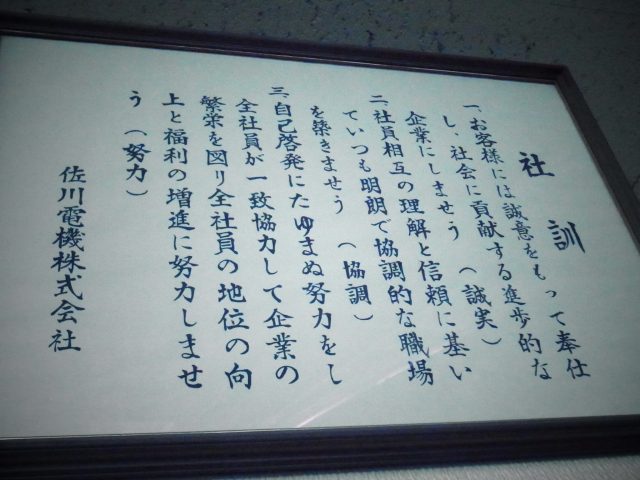 社訓
一、お客様には誠意をもって奉仕
し、社会に貢献する進歩的な
企業にしませう（誠実）
二、社員相互の理解と信頼に基い
ていつも明朗で協調的な職場
を築きませう（協調）
三、自己啓発にたゆまぬ努力をし
全社員が一致協力して企業の
繁栄を図り全社員の地位の向
上と福利の増進に努力しませ
う（努力）
佐川電機株式会社